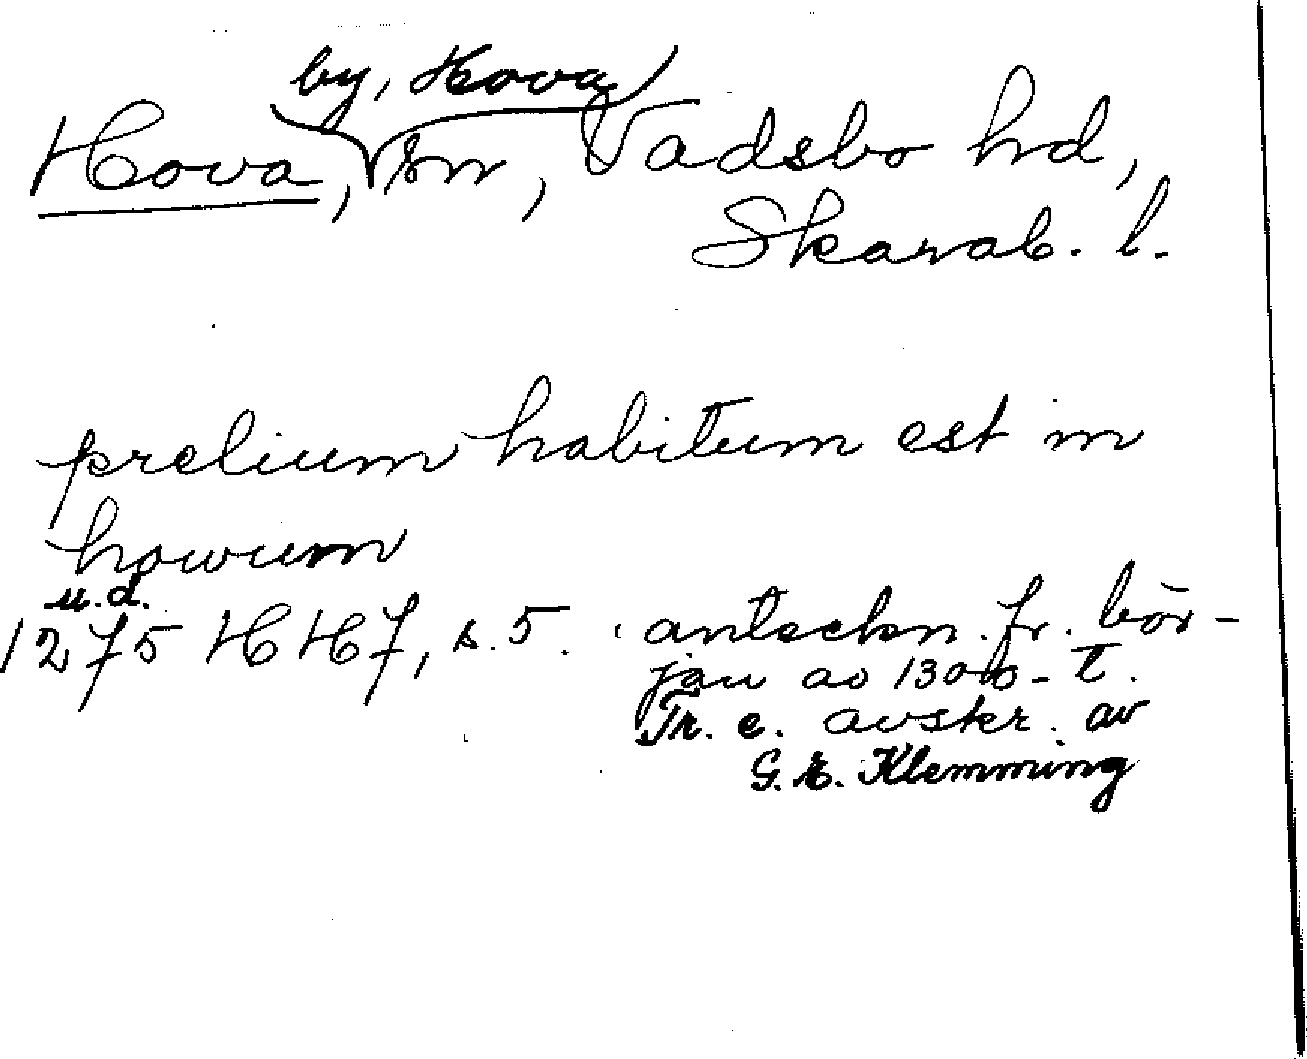 by, Hova
Hova, sn, Vadsbo hd,
Skarab. l.
prelium habitum est in
howum
u.d.
1275 HH 7, s. 5. anteckn. fr. bör-
jan av 1300-t.
Tr. e. avskr. av
G. E. Klemming